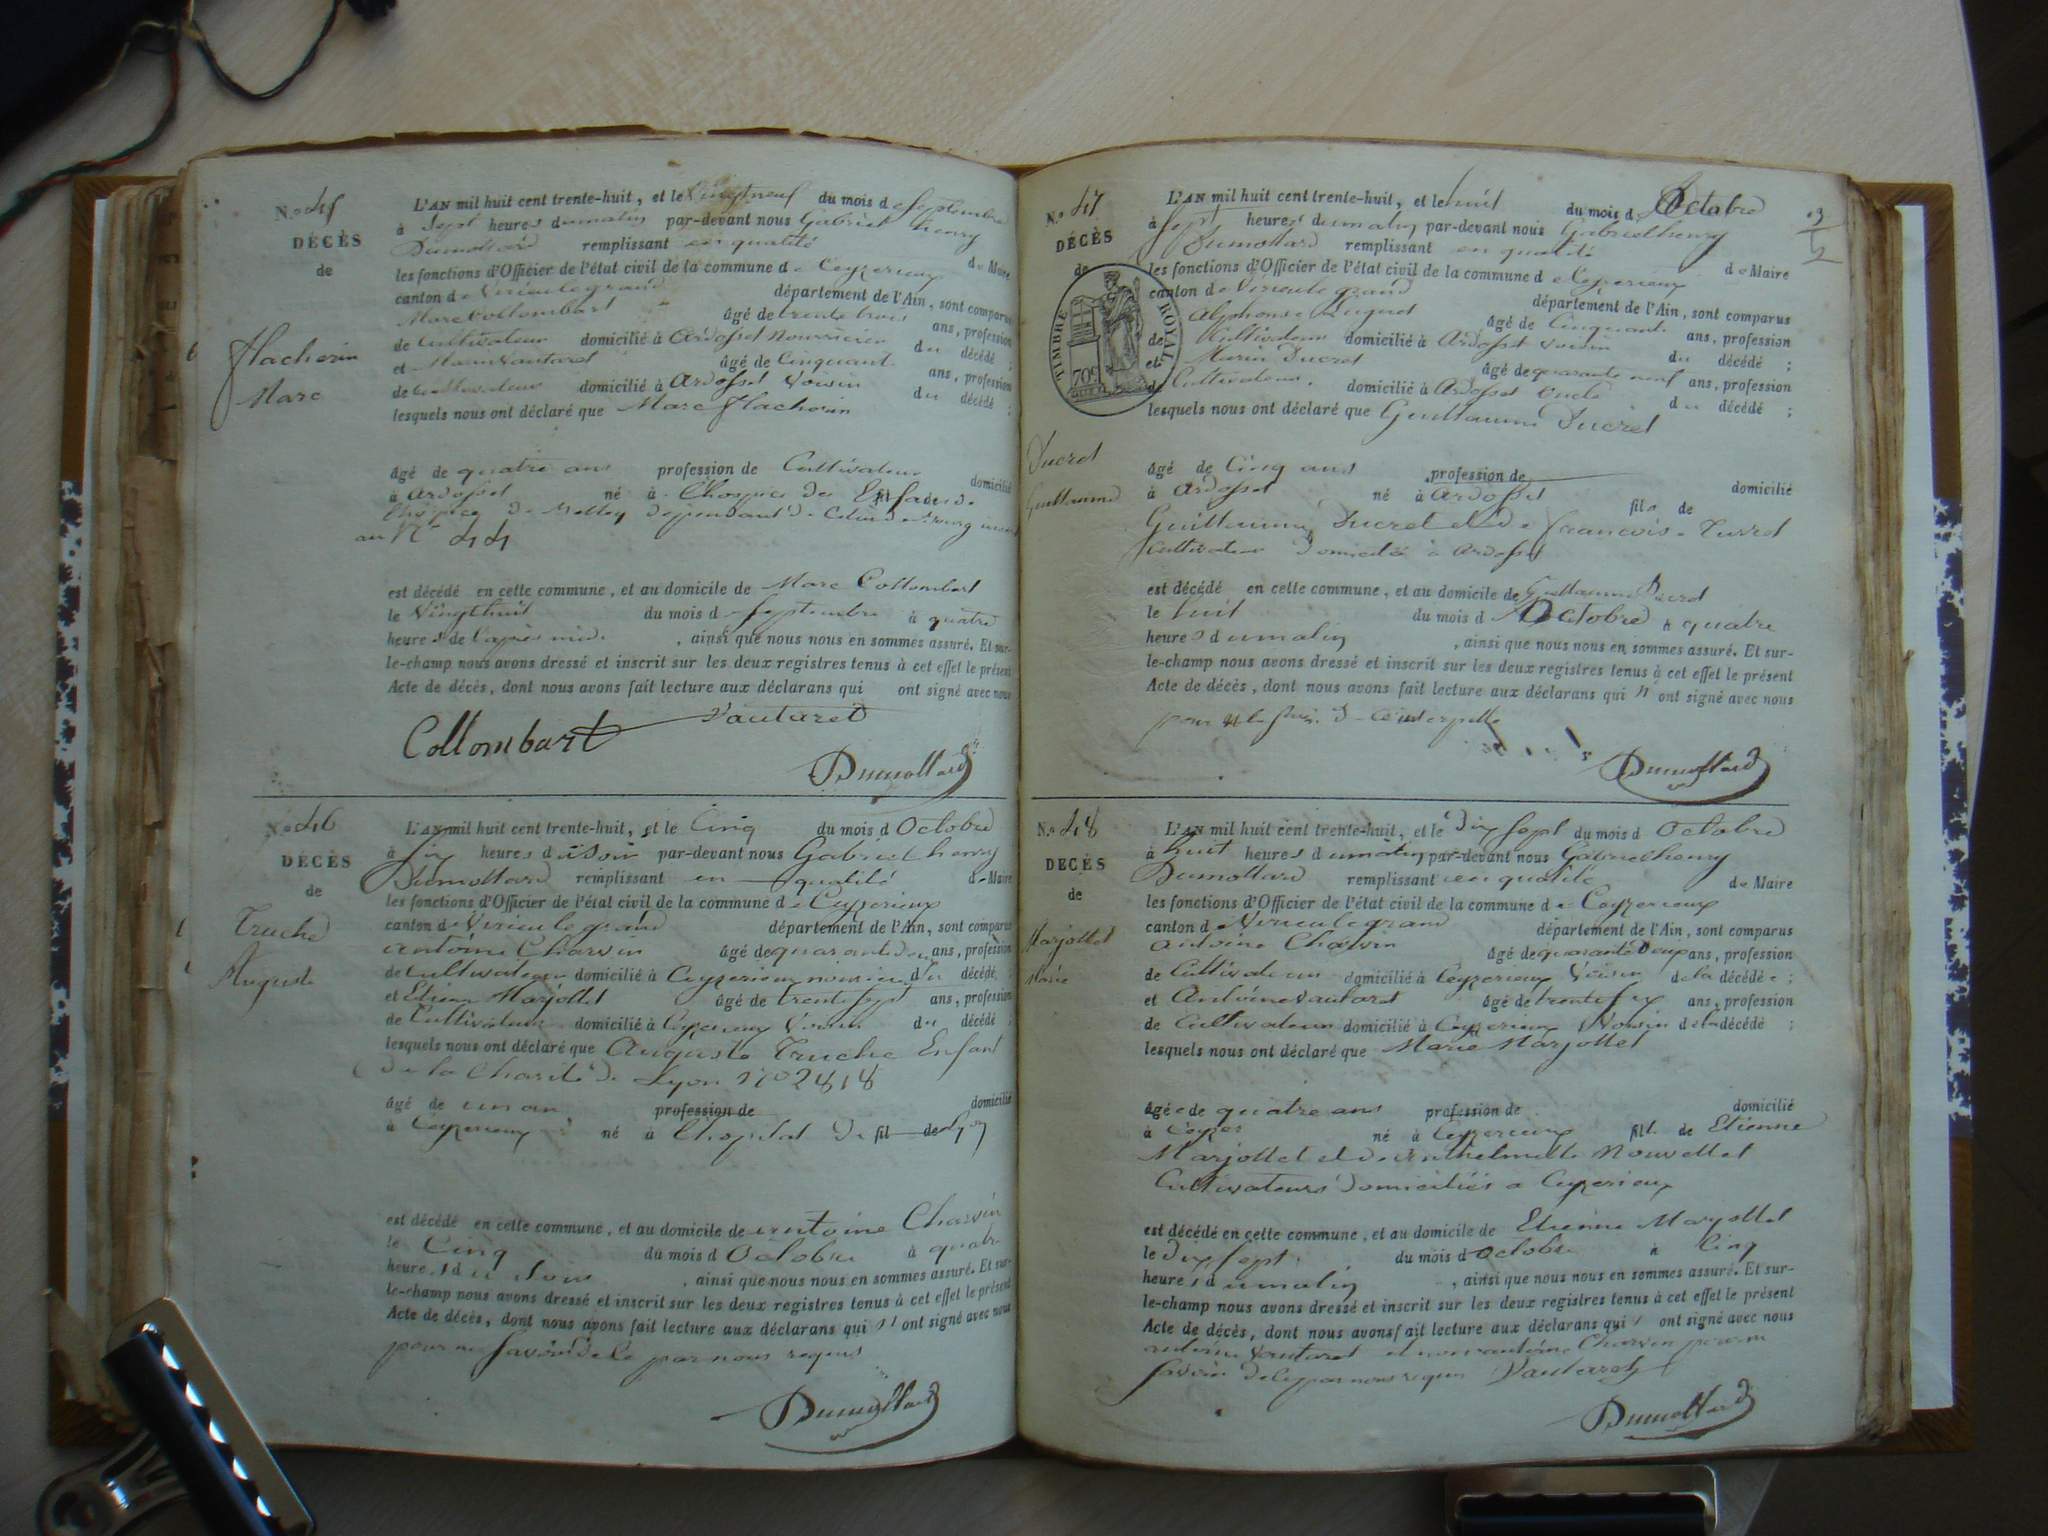 N.o 45
DÉCÈS
de
Flacherin
Marc
L'AN mil huit cent trente-huit, et le vingt neuf du mois de Septembre
à Sept heures du matin par-devant nous Gabriel henry
Dumollard remplissant en qualité de Maire
les fonctions d'Officier de l'état civil de la commune de Ceyzerieux
canton de Virieu le grand département de l'Ain, sont comparus
Marc Collombart âgé de trente trois ans, profession
de Cultivateur domicilié à Ardosset Nourricier du décédé ;
et Vautaret âgé de Cinquante ans, profession
de Cultivateur domicilié à Ardosset Voisin du décédé ;
lesquels nous ont déclaré que Marc Flacherin
âgé de quatre ans profession de Cultivateur domicilié
à Ardosset né à l'hospice des
dépendant de
au N° 44
est décédé en cette commune, et au domicile de Marc Collombart
le Vingt huit du mois de Septembre à quatre
heures de l'après midi, ainsi que nous nous en sommes assuré. Et sur-
le-champ nous avons dressé et inscrit sur les deux registres tenus à cet effet le présent
Acte de décès, dont nous avons fait lecture aux déclarans qui ont signé avec nous
Collombart Vautaret
Dumollard
N.o 46
DÉCÈS
de
Truche
Auguste
L'AN mil huit cent trente-huit, et le Cinq du mois d Octobre
à Six heures du Soir par-devant nous Gabriel henry
Dumollard remplissant en qualité de Maire
les fonctions d'Officier de l'état civil de la commune de Ceyzerieux
canton de Virieu le grand département de l'Ain, sont comparus
antoine Charvin âgé de quarante deux ans, profession
de Cultivateur domicilié à Ceyzerieux du décédé ;
et Etienne Marjollet âgé de trente sept ans, profession
de Cultivateur domicilié à Ceyzerieux Voisin du décédé ;
lesquels nous ont déclaré que Auguste Truche Enfant
de la Charité de Lyon N° 2818
âgé de un an profession de domicilié
à Ceyzerieux né à l'hopital de fil de Lyon
est décédé en cette commune, et au domicile de antoine Charvin
le Cinq du mois d Octobre à quatre
heures du Soir, ainsi que nous nous en sommes assuré. Et sur-
le-champ nous avons dressé et inscrit sur les deux registres tenus à cet effet le présent
Acte de décès, dont nous avons fait lecture aux déclarans qui n ont signé avec nous
pour ne Savoir de ce par nous requis
Dumollard
N.o 47
DÉCÈS
de
TIMBRE ROYAL
Ducret
Guillaume
L'AN mil huit cent trente-huit, et le huit du mois d Octobre
à Sept heures du matin par-devant nous Gabriel henry
Dumollard remplissant en qualité de Maire
les fonctions d'Officier de l'état civil de la commune de Ceyzerieux
canton de Virieu le grand département de l'Ain, sont comparus
Alphonse âgé de Cinquante ans, profession
de Cultivateur domicilié à Ardosset Voisin du décédé ;
et Marin Ducret âgé de quarante neuf ans, profession
de Cultivateur domicilié à Ardosset Oncle du décédé ;
lesquels nous ont déclaré que Guillaume Ducret
âgé de Cinq ans profession de domicilié
à Ardosset né à Ardosset fils de
Guillaume Ducret et de francoise
Cultivateur domicilié à Ardosset
est décédé en cette commune, et au domicile de Guillaume Ducret
le huit du mois d Octobre à quatre
heures du matin, ainsi que nous nous en sommes assuré. Et sur-
le-champ nous avons dressé et inscrit sur les deux registres tenus à cet effet le présent
Acte de décès, dont nous avons fait lecture aux déclarans qui n ont signé avec nous
pour
Dumollard
N.o 48
DÉCÈS
de
Marjollet
Marie
L'AN mil huit cent trente-huit, et le Dix Sept du mois d Octobre
à huit heures du matin par-devant nous Gabriel henry
Dumollard remplissant en qualité de Maire
les fonctions d'Officier de l'état civil de la commune de Ceyzerieux
canton de Virieu le grand département de l'Ain, sont comparus
antoine Charvin âgé de quarante Deux ans, profession
de Cultivateur domicilié à Ceyzerieux Voisin de la décédée ;
et Antoine Vautaret âgé de trente six ans, profession
de Cultivateur domicilié à Ceyzerieux Voisin de la décédé ;
lesquels nous ont déclaré que Marie Marjollet
âgée de quatre ans profession de domicilié
à Ceyzer né à Ceyzerieux fille de Etienne
Marjollet et de anthelmette Nouvellet
Cultivateurs domiciliés a Ceyzerieux
est décédé en cette commune, et au domicile de Etienne Marjollet
le Dix Sept du mois d Octobre à Cinq
heures du matin, ainsi que nous nous en sommes assuré. Et sur-
le-champ nous avons dressé et inscrit sur les deux registres tenus à cet effet le présent
Acte de décès, dont nous avons fait lecture aux déclarans qui ont signé avec nous
antoine Vautaret et non antoine Charvin pour ne
Savoir de ce par nous requis Vautaret
Dumollard